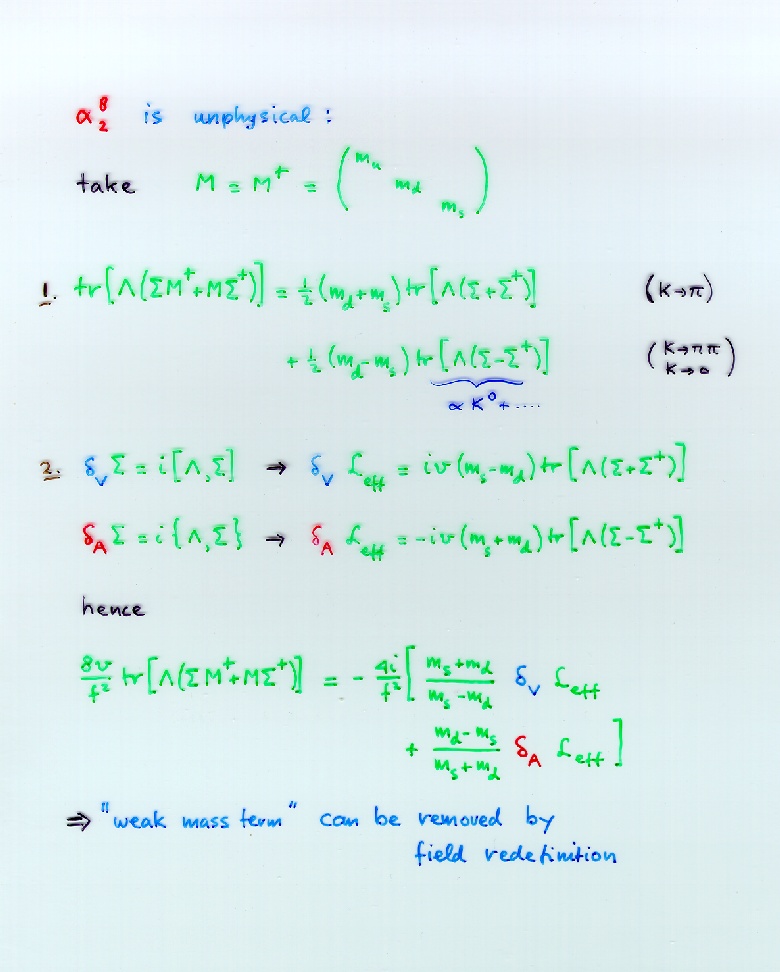 α₂⁸ is unphysical :
take M = M⁺ = ( m_u m_d m_s )
1. tr[Λ(ΣM⁺+MΣ⁺)] = ½(m_d+m_s) tr[Λ(Σ+Σ⁺)] (K→π)
+ ½(m_d-m_s) tr[Λ(Σ-Σ⁺)] (K→ππ K→0)
∝ K⁰ + ....
2. δ_V Σ = i[Λ,Σ] → δ_V ℒ_eff = iv(m_s-m_d) tr[Λ(Σ+Σ⁺)]
δ_A Σ = i{Λ,Σ} → δ_A ℒ_eff = -iv(m_s+m_d) tr[Λ(Σ-Σ⁺)]
hence
8v/f² tr[Λ(ΣM⁺+MΣ⁺)] = - 4i/f² [ (m_s+m_d)/(m_s-m_d) δ_V ℒ_eff
+ (m_d-m_s)/(m_s+m_d) δ_A ℒ_eff ]
⇒ "weak mass term" can be removed by
field redefinition